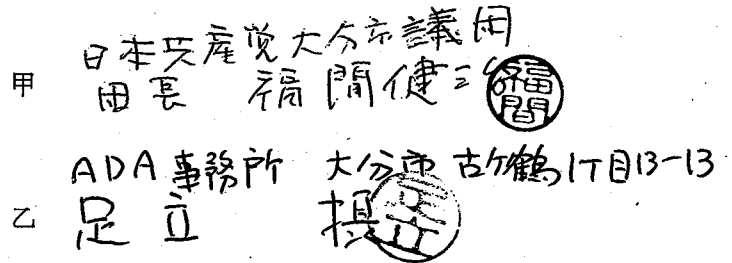 日本共産党大分市議団
甲 団長 福間健治 福間
ADA事務所 大分市古ケ鶴1丁目13-13
乙 足立 足立